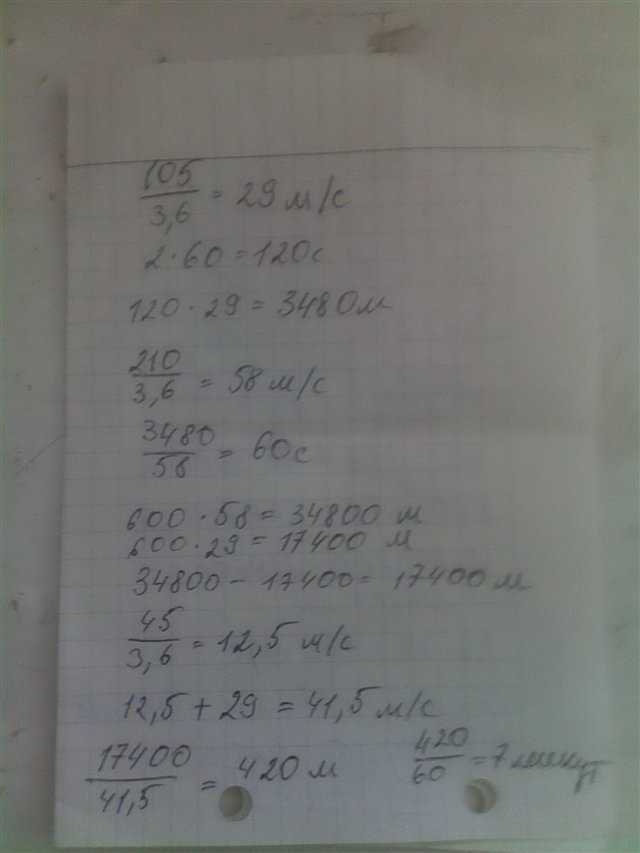 105/3,6 = 29 м/с
2·60 = 120с
120·29 = 3480м
210/3,6 = 58 м/с
3480/58 = 60с
600·58 = 34800 м
600·29 = 17400 м
34800 - 17400 = 17400 м
45/3,6 = 12,5 м/с
12,5 + 29 = 41,5 м/с
17400/41,5 = 420 м 420/60 = 7 минут